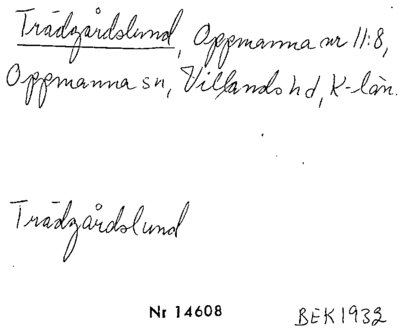 Trädgårdslund, Oppmanna nr 11:8,
Oppmanna sn, Villands hd, K-län.
Trädgårdslund
Nr 14608
BEK1932